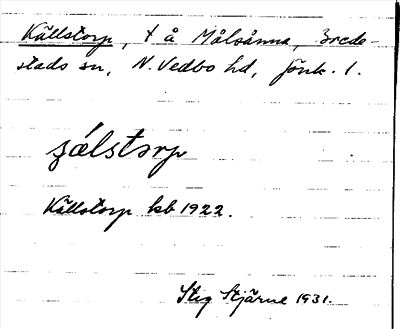 Källstorp, t å Målsånna, Brede-
stads sn, N. Vedbo hd, Jönk. l.
şǽlstorp
Källstorp kb 1922.
Stig Stjärne 1931.